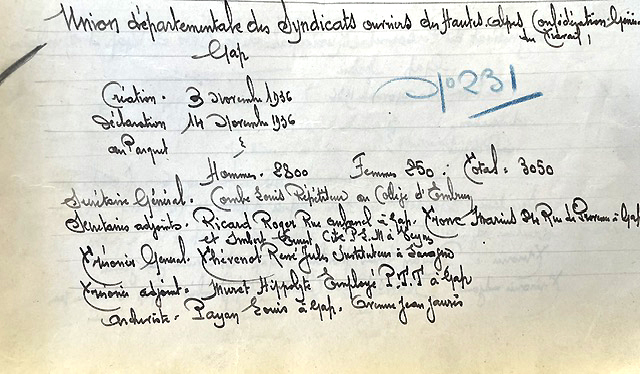 Union départementale des Syndicats ouvriers des Hautes-Alpes Confédération Génér
du Travail
Gap
N° 231
Création. 3 Novembre 1936
Déclaration 14 Novembre 1936
au Parquet
Hommes. 2800 Femmes 250 : Total : 3050
Secrétaire Général. Combe Louis Répétiteur au Collège d'Embrun
Secrétaires adjoints. Ricard Roger Rue à Gap. Marius 24 Rue de à Gap
et Imbert Cité P.L.M à Veynes
Trésorier Général. Thévenot René Jules Instituteur à
Trésorier adjoint. Muret Hippolyte Employé P.T.T à Gap
Archiviste. Payan Louis à Gap. Avenue Jean Jaurès